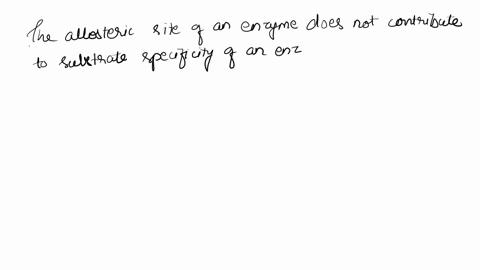 The allosteric site of an enzyme does not contribute
to substrate specificity of an enz